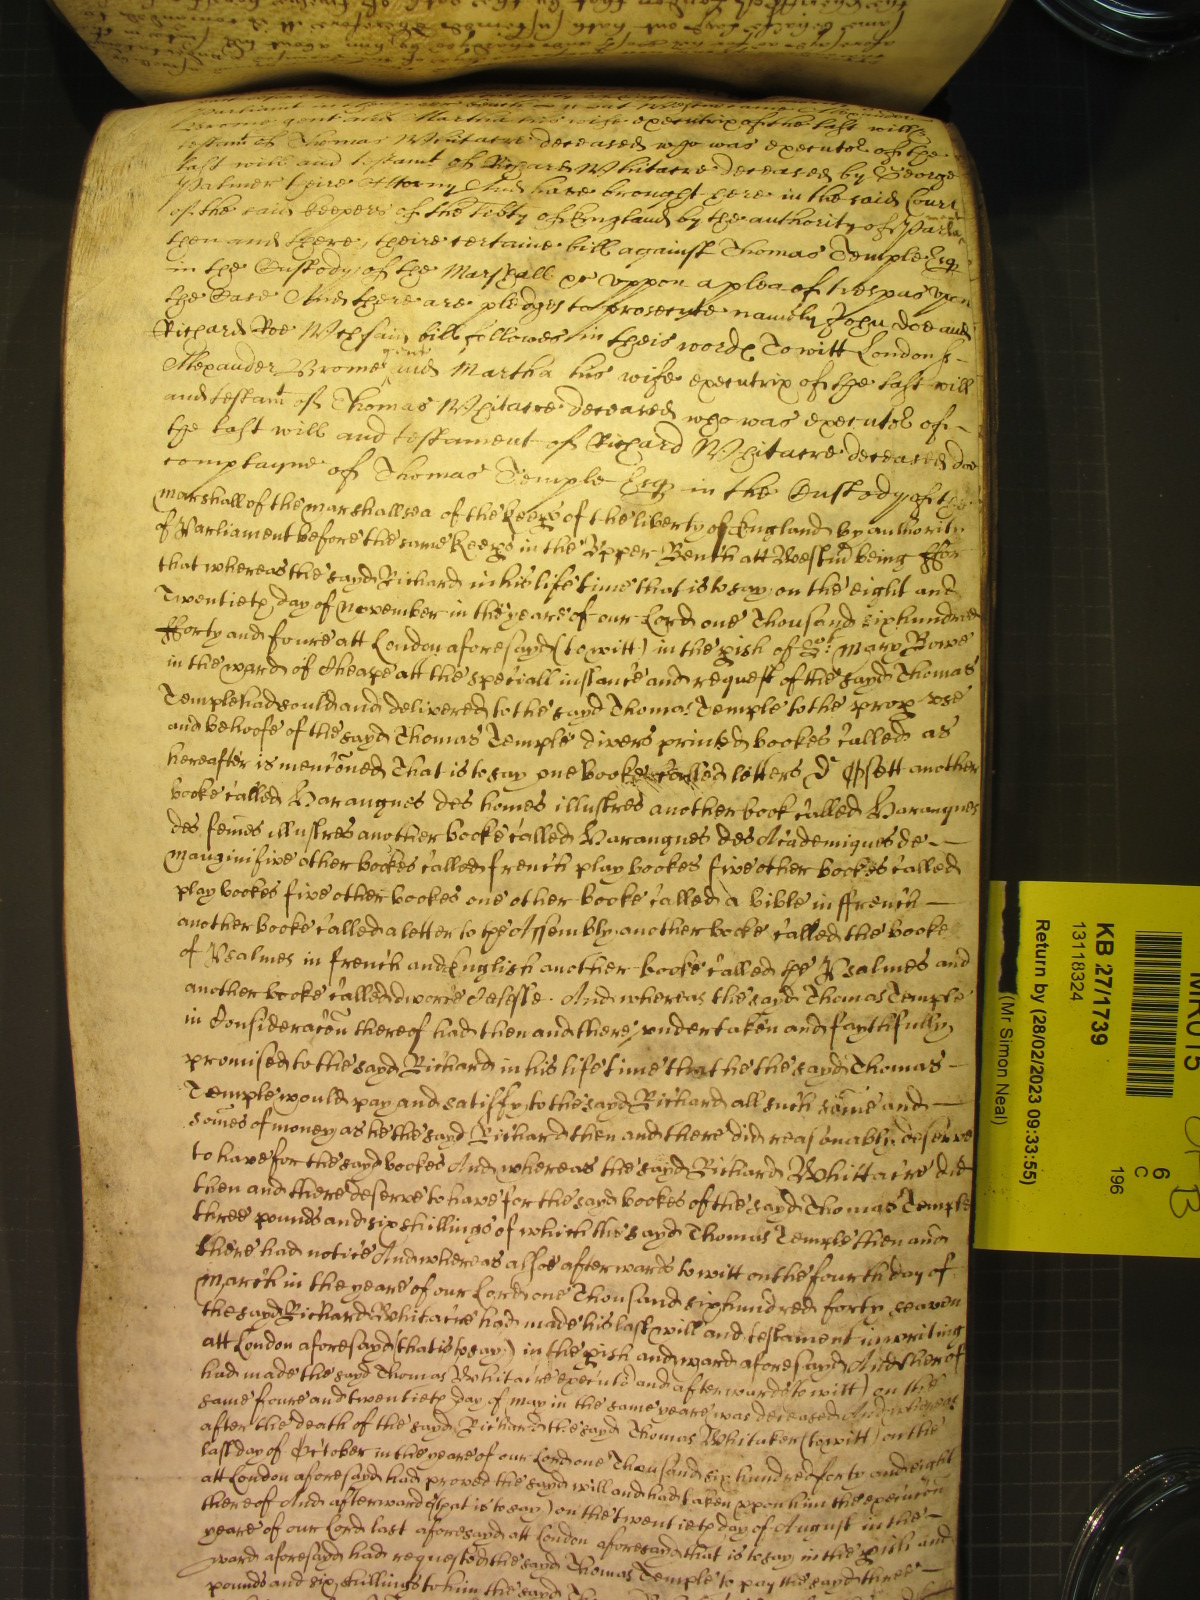 Brome gent and Martha his wife executrix of the last will
testamt of Thomas Whitacre deceased who was executor of the
last will and testamt of Richard Whitacre deceased by George
Palmer theire Attorny And have brought here in the said Court
of the said keepers of the libty of England by the authority of Parliament
then and there theire certaine bill against Thomas Temple Esq
in the Custody of the Marshall &c uppon a plea of trespas upon
the Case And there are pledges to prosecute namely John Doe and
Richard Roe Which said bill followes in theis wordes To witt London ss
Alexander Brome gent and Martha his wife executrix of the last will
and testamt of Thomas Whitacre deceased who was executor of
the last will and testament of Richard Whitacre deceased doe
complayne of Thomas Temple Esq in the Custody of the
marshall of the marshallsea of the keeps of the liberty of England by authority
of Parliament before the same keeps in the Upper Bench att Westm being For
that whereas the sayd Richard in his life time that is to say on the eight and
Twentieth day of November in the yeare of our Lord one Thousand six hundred
fforty and foure att London aforesayd (to witt) in the pish of St Mary Bowe
in the ward of Cheape att the speciall instance and request of the sayd Thomas
Temple had sould and delivered to the sayd Thomas Temple to the prop use
and behoofe of the sayd Thomas Temple divers printed bookes called as
hereafter is mencõned That is to say one booke called letters D another
booke called Harangues des homes illustres another book called Harangues
des femes illustres another booke called Harangues des Academiques de
mangini five other bookes called french play bookes five other bookes called
play bookes five other bookes one other booke called a bible in ffrench
another booke called a letter to the Assembly another booke called the booke
of Psalmes in french and English another booke called the Psalmes and
another booke called divorce. And whereas the sayd Thomas Temple
in Consideracõn thereof had then and there undertaken and faythfully
promised to the sayd Richard in his life time that he the sayd Thomas
Temple would pay and satisfy to the sayd Richard all such some and
somes of money as he the sayd Richard then and there did reasonably deserve
to have for the sayd bookes And whereas the sayd Richard Whittacre did
then and there deserve to have for the sayd bookes of the sayd Thomas Temple
three pounds and six shillings of which the sayd Thomas Temple then and
there had notice And whereas alsoe afterwards to witt on the fourth day of
March in the yeare of our Lord one Thousand six hundred forty seaven
the sayd Richard Whitacre had made his last will and testament in writing
att London aforesayd (that is to say) in the pish and ward aforesayd And therof
had made the sayd Thomas Whitacre executor and afterwards (to witt) on the
same foure and twentieth day of may in the same yeare was deceased And whereas
after the death of the sayd Richard the sayd Thomas Whitaker (to witt) on the
last day of October in the yeare of our Lord one Thousand six hundred forty and eight
att London aforesayd had proved the sayd will and had taken uppon him the execucõn
thereof And afterwards (that is to say) on the twentieth day of August in the
yeare of our Lord last aforesayd att London aforesayd that is to say in the pish and
ward aforesayd had requested the sayd Thomas Temple to pay the sayd three
pounds and six shillings to him the sayd
KB 27/1739
13118324
Return by (28/02/2023 09:33:55)
(Mr Simon Neal)
6
C
196